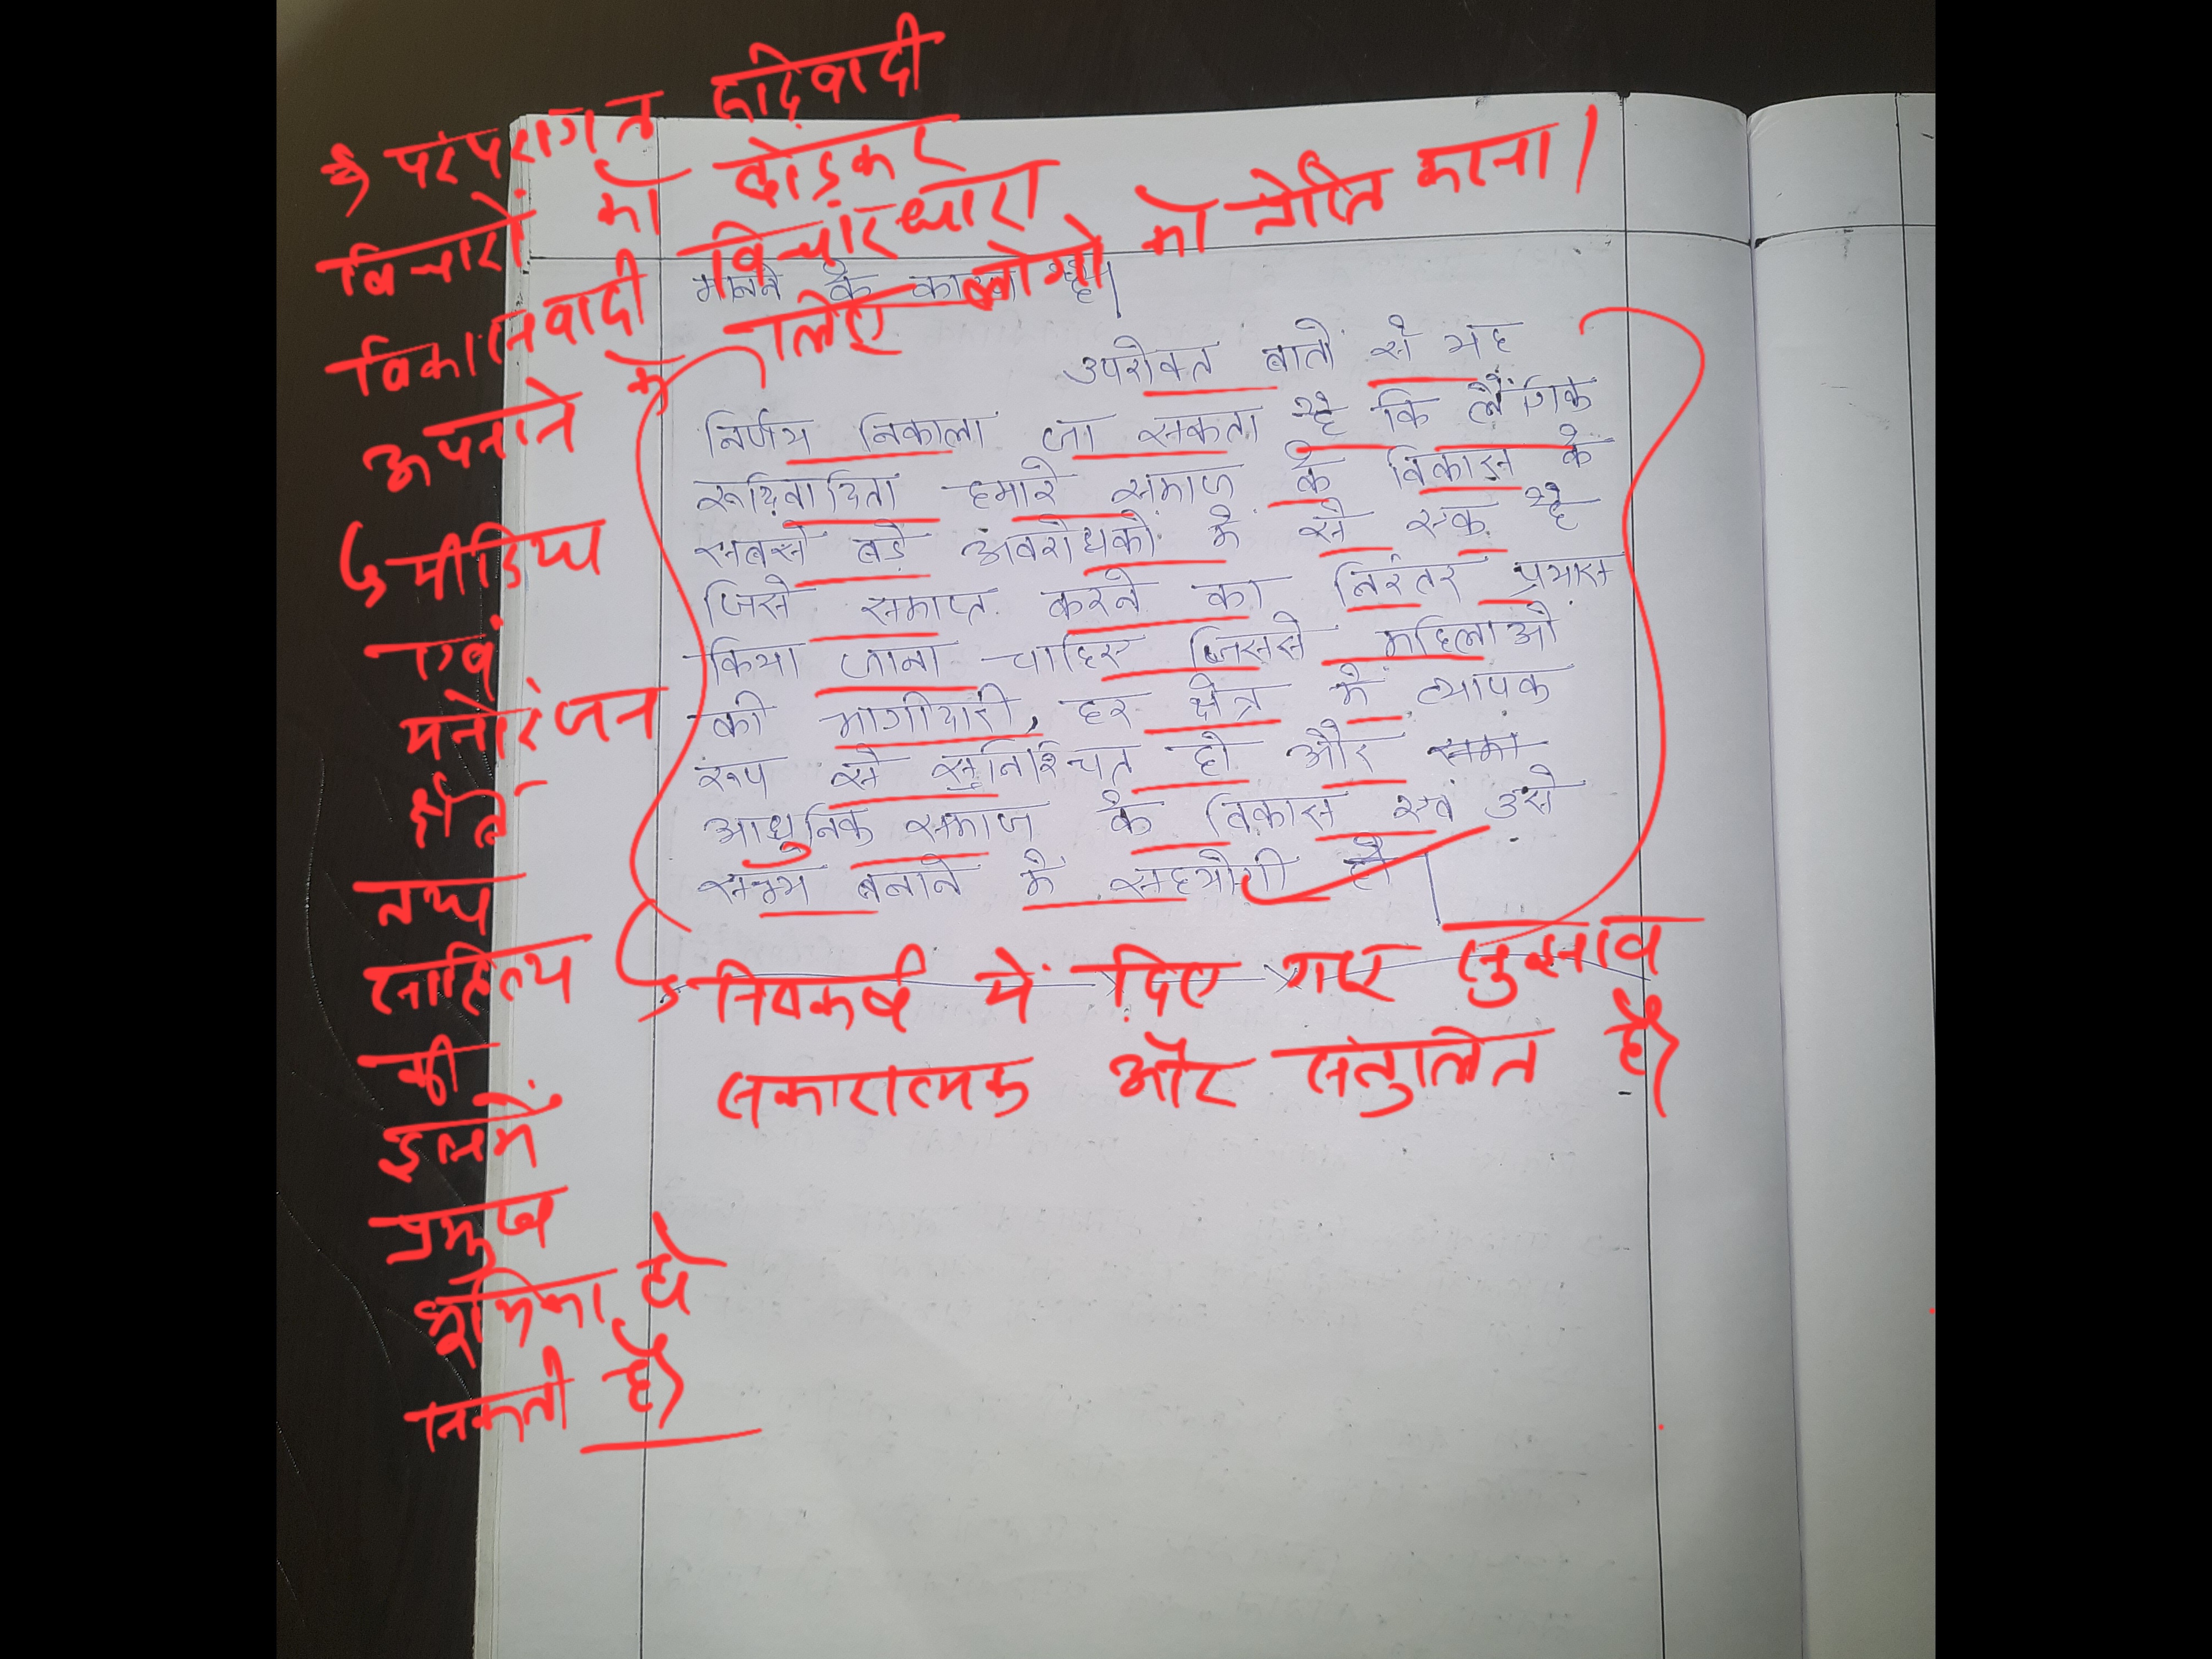 → परंपरागत रूढ़िवादी
विचारों को छोड़कर
विकासवादी विचारधारा
अपनाने के लिए लोगों को प्रेरित करना।
↳ मीडिया
एवं
मनोरंजन
क्षेत्र
तथा
साहित्य
की
इसमें
प्रमुख
भूमिका हो
सकती है।
मानने के कारण है।
उपरोक्त बातों से यह
निर्णय निकाला जा सकता है कि लैंगिक
रूढ़िवादिता हमारे समाज के विकास के
सबसे बड़े अवरोधकों में से एक है
जिसे समाप्त करने का निरंतर प्रयास
किया जाना चाहिए जिससे महिलाओं
की भागीदारी, हर क्षेत्र में व्यापक
रूप से सुनिश्चित हो और समा
आधुनिक समाज के विकास एवं उसे
सभ्य बनाने में सहयोगी हो।
निष्कर्ष में दिए गए सुझाव
सकारात्मक और संतुलित है।